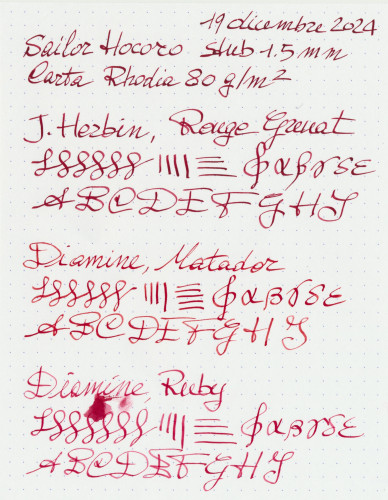 19 dicembre 2024
Sailor Hocoro stub 1.5 mm
Carta Rhodia 80 g/m²
J. Herbin, Rouge Grenat
αβγδε
ABCDEFGHJ
Diamine, Matador
αβγδε
ABCDEFGHJ
Diamine, Ruby
αβγδε
ABCDEFGHJ